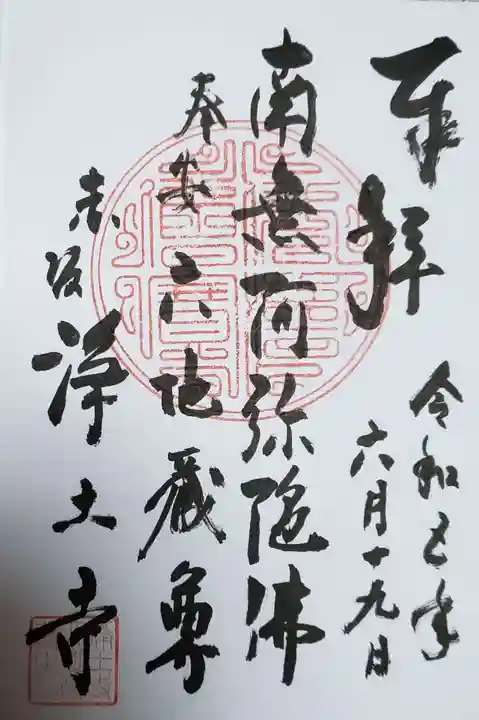 奉拝
令和五年
六月十九日
南無阿弥陀佛
奉安六地蔵尊
赤坂浄土寺